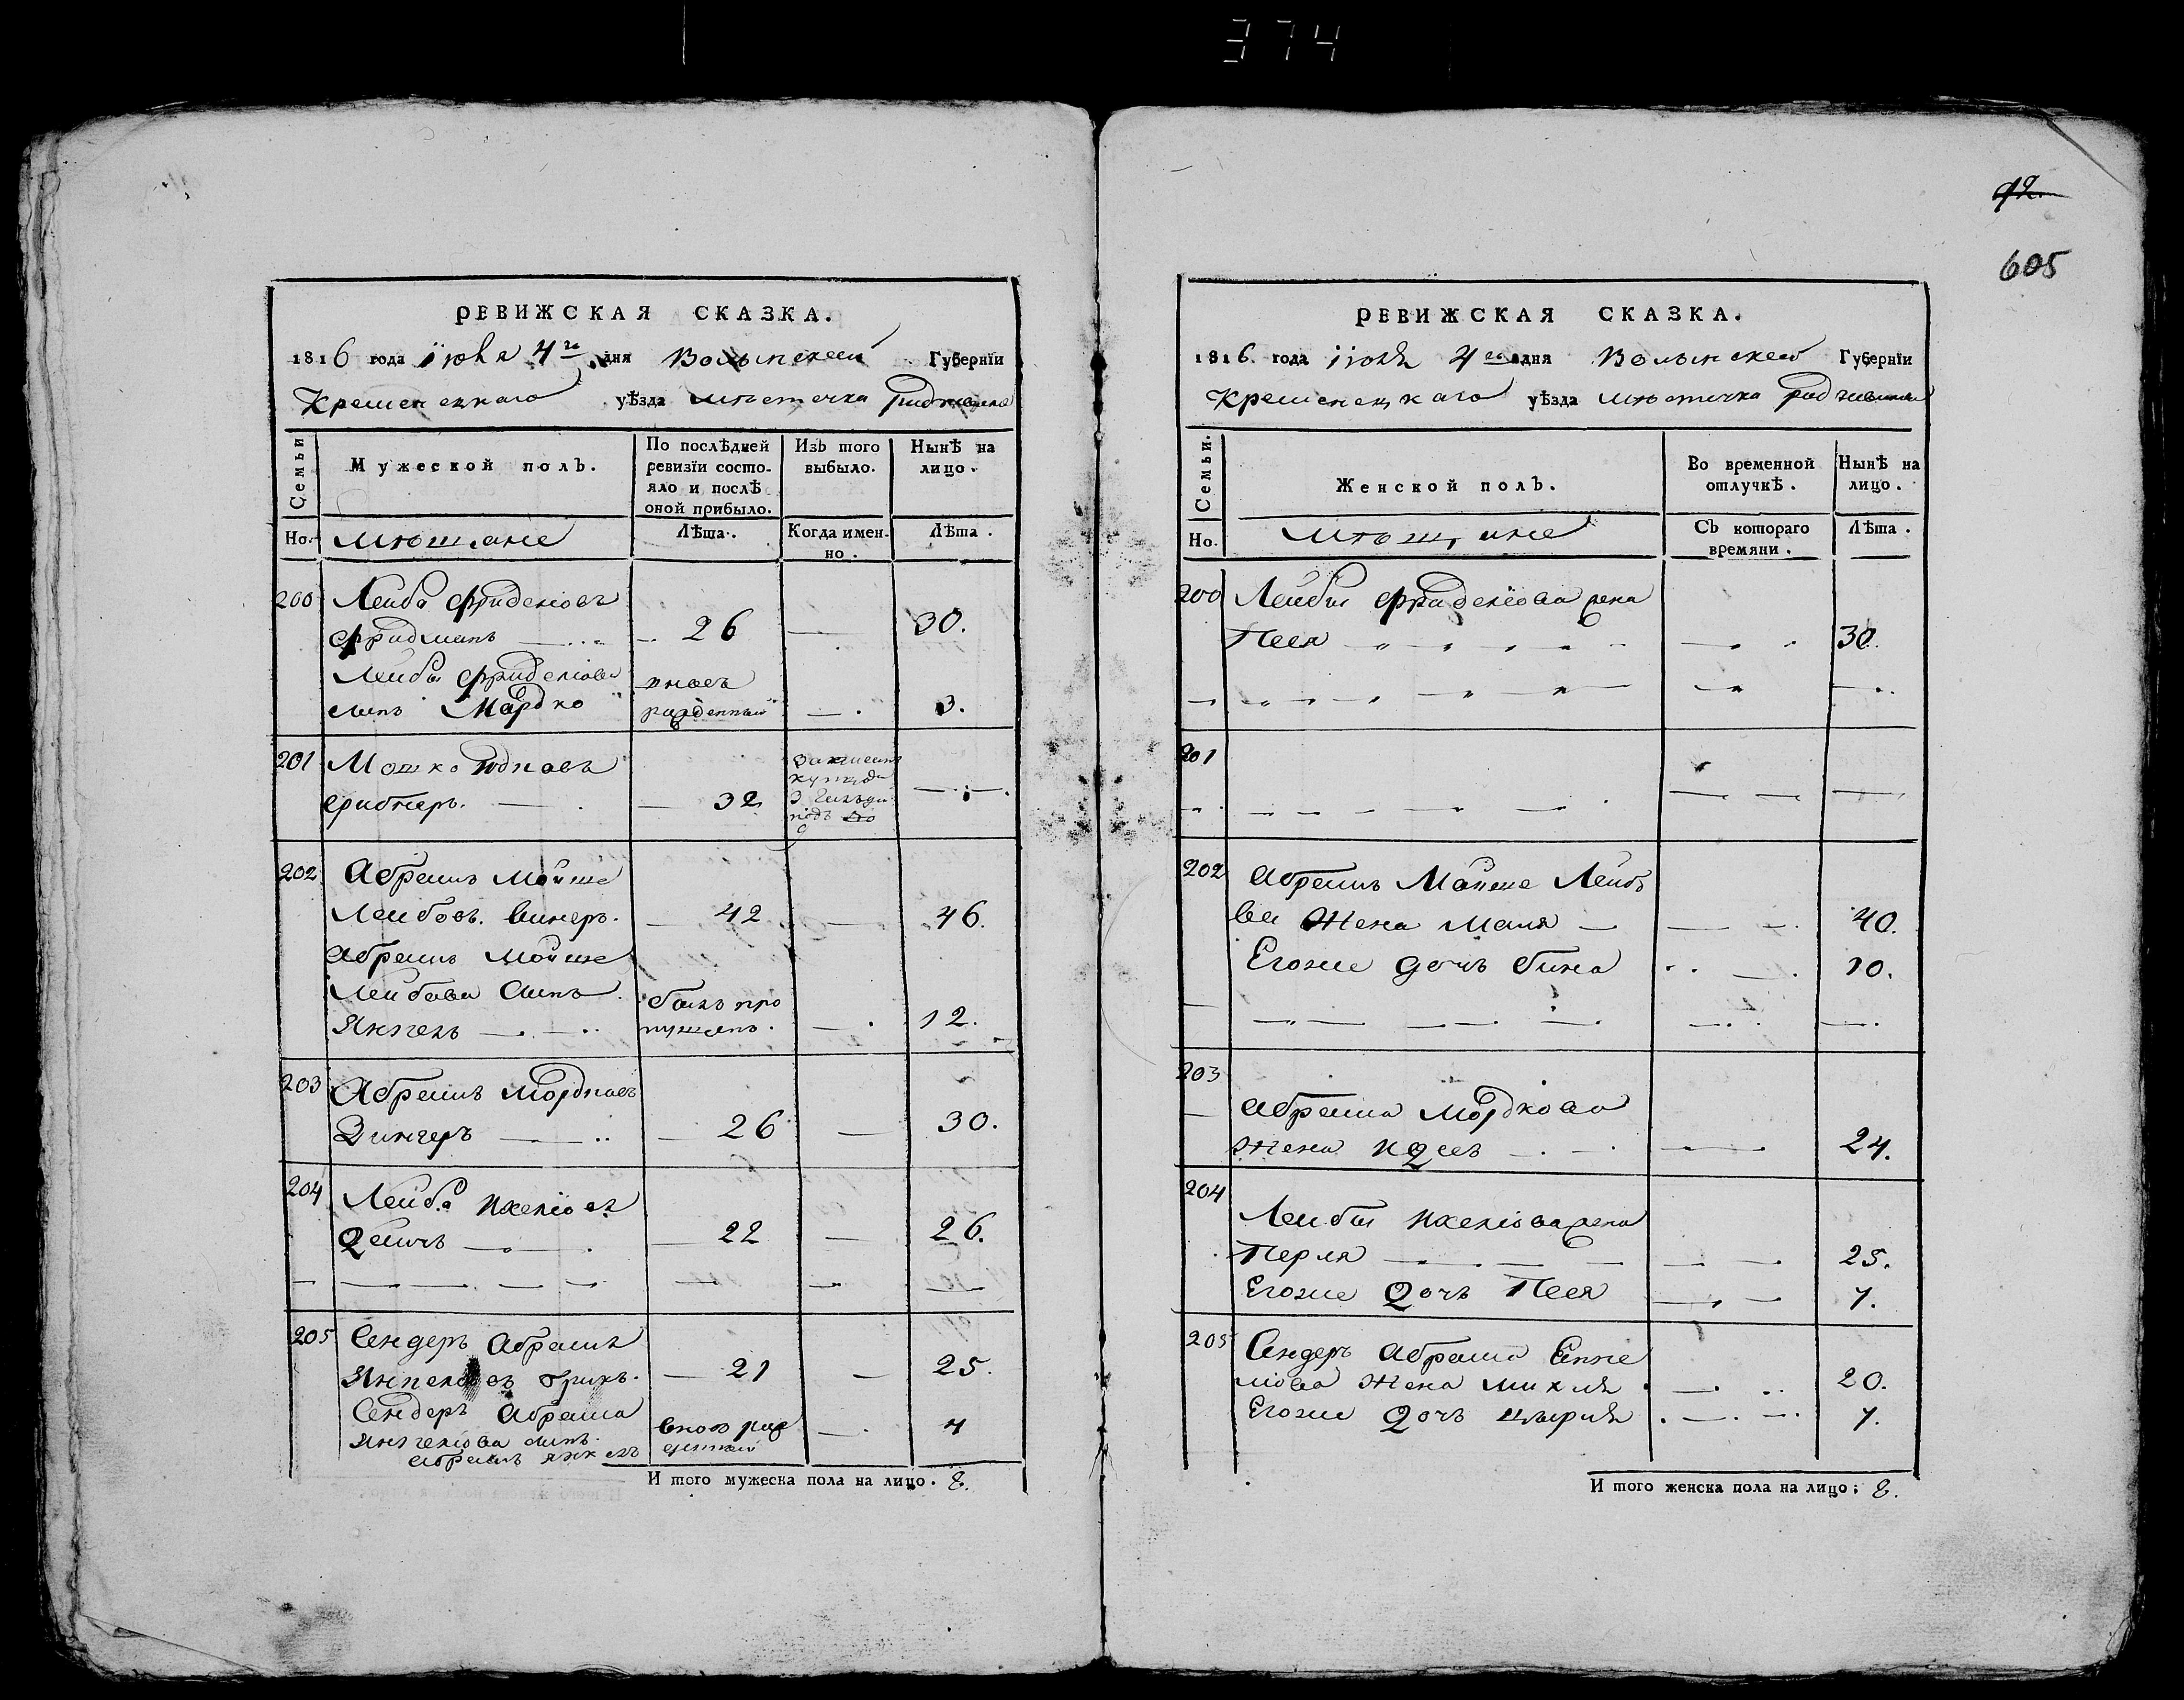 374
92.
605
РЕВИЖСКАЯ СКАЗКА.
1816 года іюля 4го дня Волынской Губернїи
Кременецкаго уѣзда мѣстечка Радзивилова
Семьи
Мужеской полъ.
По послѣдней ревизїи состо-
яло и послѣ
оной прибыло.
Изъ того
выбыло.
Нынѣ на
лицо.
Но.
Мѣщане
Лѣта.
Когда имен-
но.
Лѣта.
200 Лейба Фриделіовъ
Фридманъ — 26 — 30.
Лейбы Фриделіова вновь
сынъ Мардко рожденный — 3.
201 Мошко Юдковъ
32 — —
3 гильди
подъ №
9
202 Абрамъ Мойше
Лейбовъ Винеръ. — 42 — 46.
Абрамъ Мойше
Лейбова Сынъ былъ про
Янкель — пущенъ. — 12.
203 Абрамъ Мордковъ
Зингеръ — 26 — 30.
204 Лейба Ихеліовъ
— 22 — 26.
205 Сендеръ Абрамъ
Янкеліовъ — 21 — 25.
Сендеръ Абрама вновь рож
Янкеліова сынъ денный — 4
Абрамъ Янкель
И того мужеска пола на лицо. 8.
РЕВИЖСКАЯ СКАЗКА.
1816. года іюля 4го дня Волынской Губернїи
Кременецкаго уѣзда мѣстечка Радзивилова
Семьи.
Женской полъ.
Во временной
отлучкѣ.
Нынѣ на
лицо.
Но.
Мѣщане
Съ котораго
времяни.
Лѣта.
200 Лейбы Фриделіова жена
Песя — 30.
201
202 Абрамъ Мойше Лейбо
ва Жена Маля — 40.
Егоже дочь Бина — 10.
203
Абрама Мордкова
Жена — 24.
204
Лейбы Ихеліова жена
Перля — 25.
Егоже Дочь Песя — 7.
205 Сендеръ Абрама Янке
ліова Жена Михля — 20.
Егоже Дочь Цырля — 7.
И того женска пола на лицо; 8.